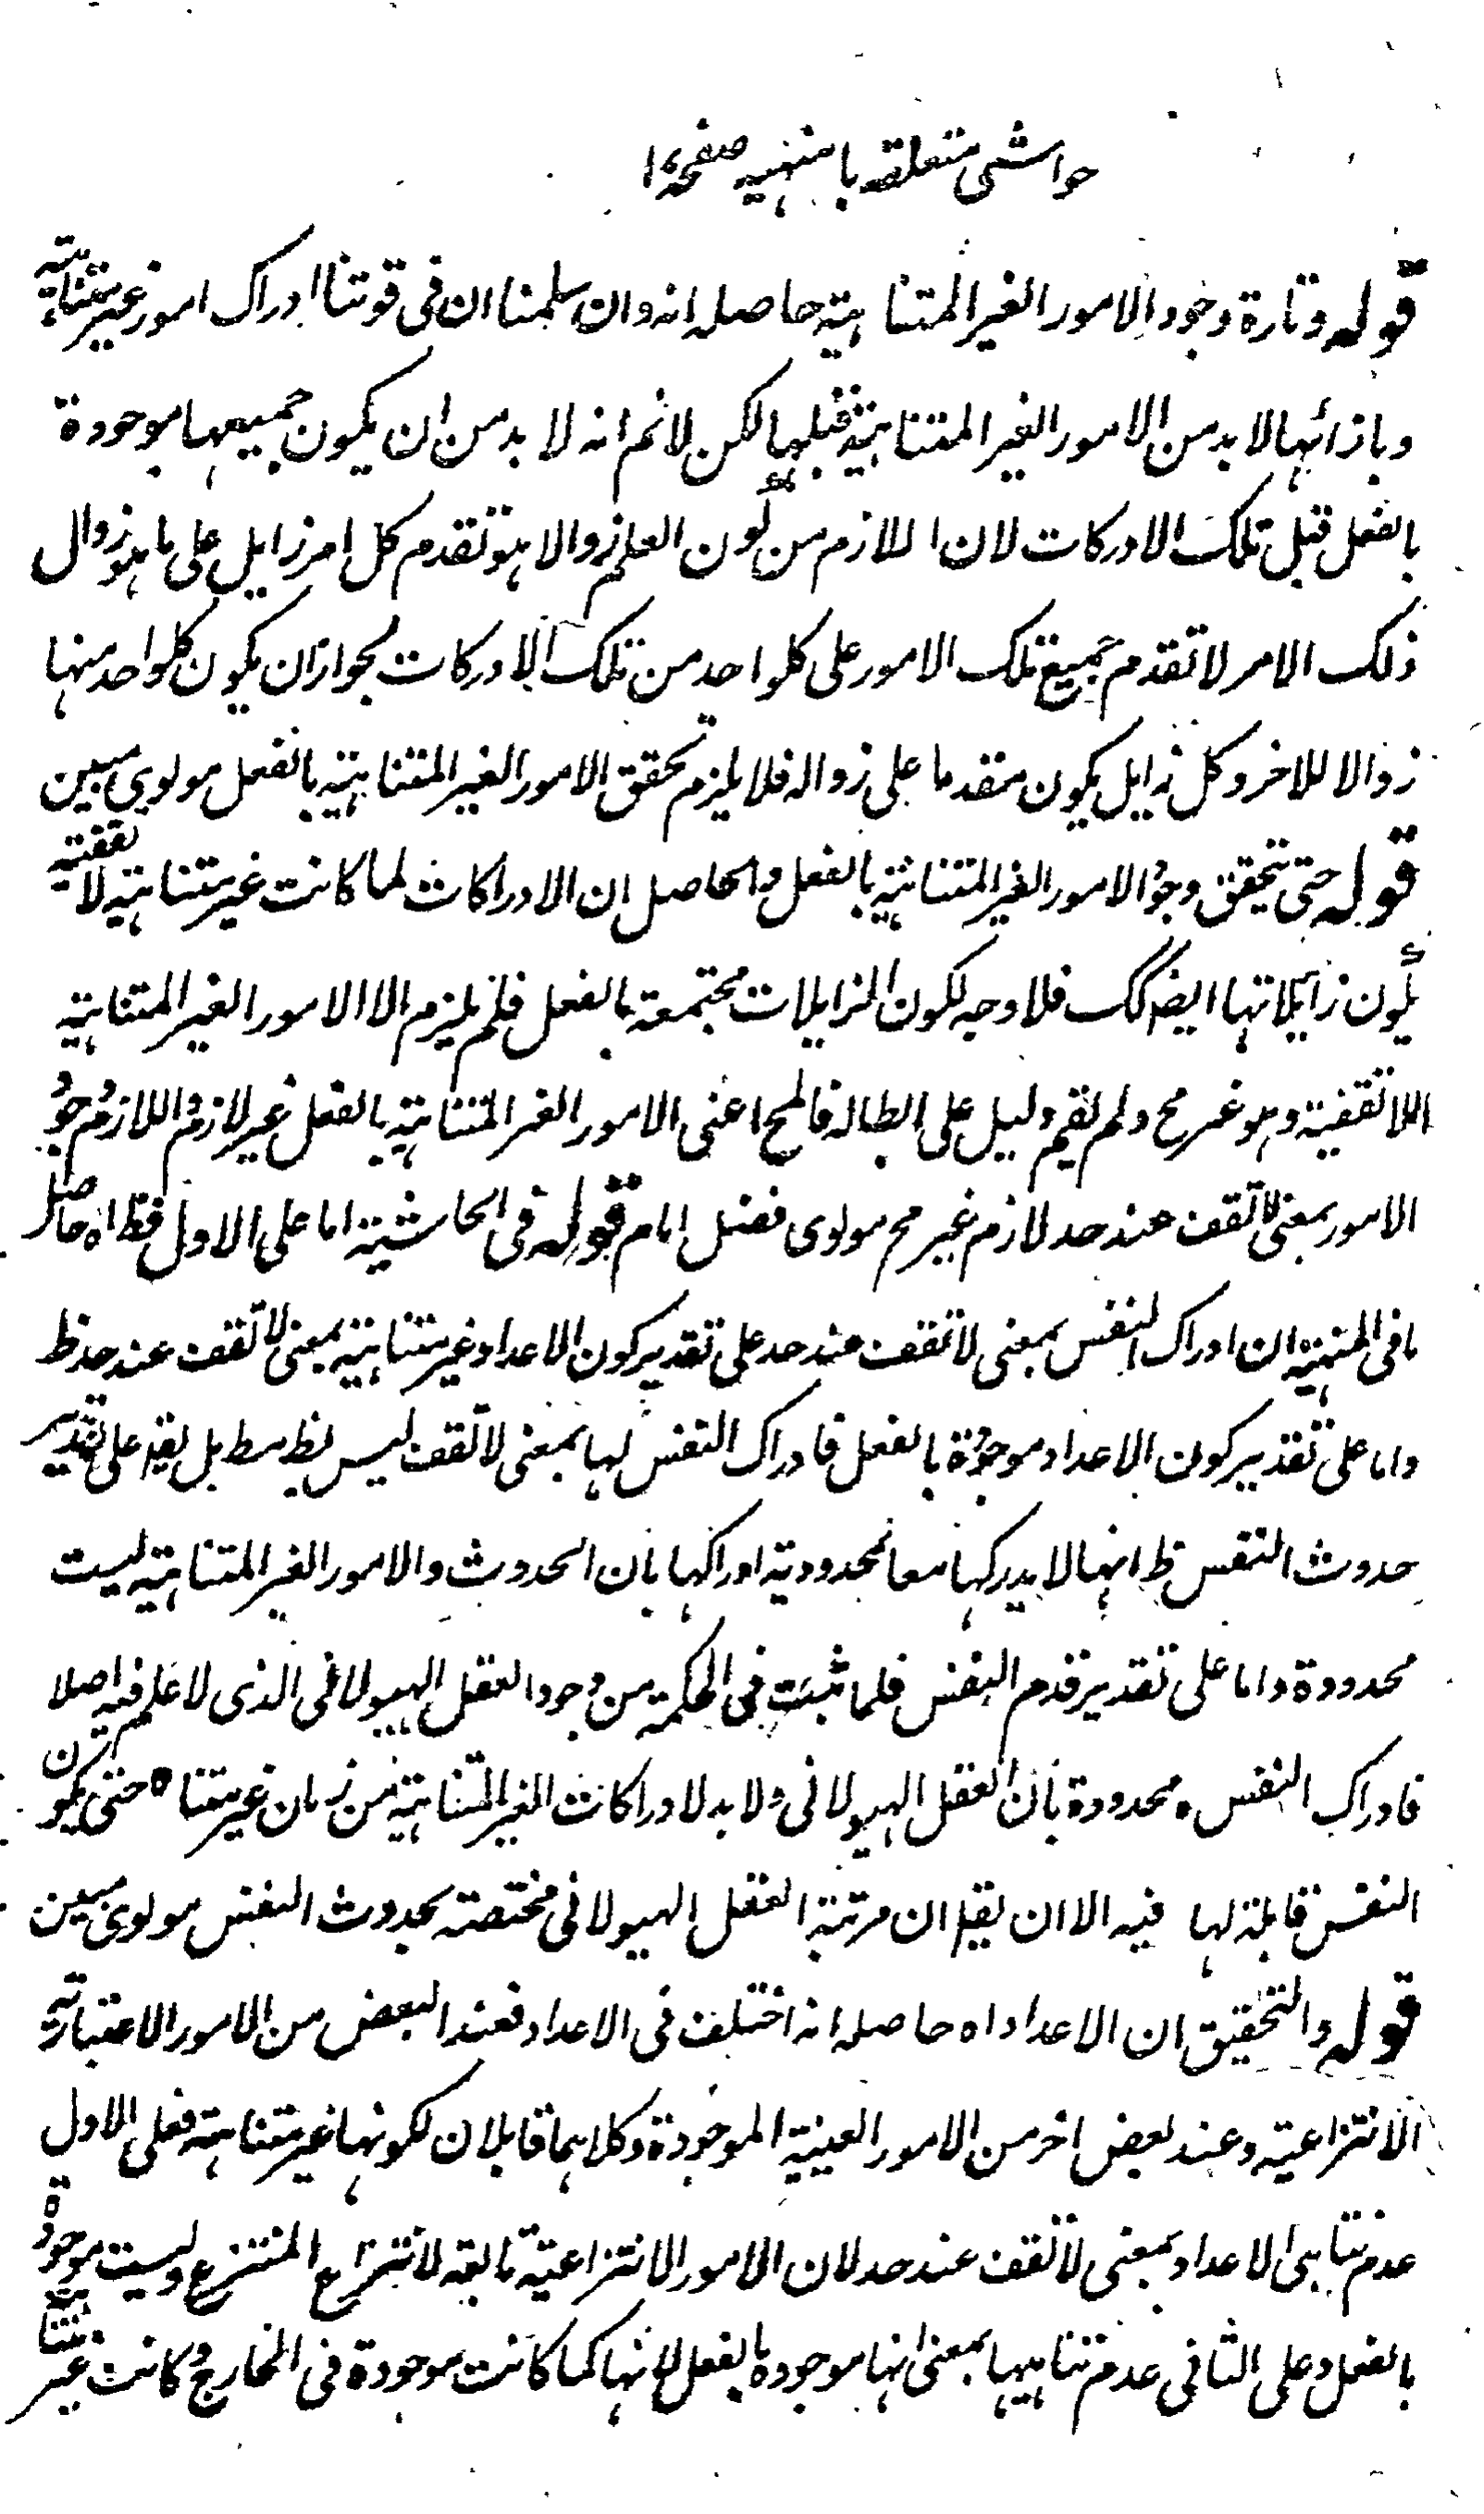 حواشی متعلقه بامنهیه صفحه ۱۴
قوله وتارة وجود الامور الغیر المتناهیة حاصله انه وان سلمنا ان فی قوتنا ادراک امور غیر متناهیة
وبازائها لا بد من الامور الغیر المتناهیة قبلها لکن لانم انه لا بد من ان یکون جمیعها موجودة
بالفعل قبل تلک الادرکات لان اللازم من کون العلم زوالا هو تقدم کل امر زایل علی ما هو زوال
ذلک الامر لا تقدم جمیع تلک الامور علی کلواحد من تلک الادرکات لجواز ان یکون کلواحد منها
زوالا للاخر وکل زایل یکون متقدما علی زواله فلا یلزم تحقق الامور الغیر المتناهیة بالفعل مولوی مبین
قوله حتی یتحقق وجود الامور الغیر المتناهیة بالفعل والحاصل ان الادراکات لما کانت غیر متناهیة لا تقفیة
یکون زایلاتها ایضا کک فلا وجه لکون الزایلات مجتمعة بالفعل فلم یلزم الا الامور الغیر المتناهیة
اللا تقفیة وهو غیر مح ولم یقم دلیل علی ابطاله فالمح اعنی الامور الغیر المتناهیة بالفعل غیر لازم واللازم وجود
الامور بمعنی لا تقف عند حد لازم غیر مح مولوی فضل امام قوله فی الحاشیة اما علی الاول فظ اه حاصل
ما فی المنهیة ان ادراک النفس بمعنی لا تقف عند حد علی تقدیر کون الاعداد غیر متناهیة بمعنی لا تقف عند حد ظ
واما علی تقدیر کون الاعداد موجودة بالفعل فادراک النفس لها بمعنی لا تقف لیس بظ مط بل یقر علی تقدیر
حدوث النفس ظ انها لا یدرکها معا لمحدودیة ادراکها بان الحدوث والامور الغیر المتناهیة لیست
محدودة واما علی تقدیر قدم النفس فلما ثبت فی الحکمة من وجود العقل الهیولانی الذی لا علم فیه اصلا
فادراک النفس محدودة بان العقل الهیولانی ولا بد لادراکات الغیر المتناهیة من زمان غیر متناه حتی یکون
النفس قابلة لها فیه الا ان یقر ان مرتبة العقل الهیولانی مختصة بحدوث النفس مولوی مبین
قوله والتحقیق ان الاعداد اه حاصله انه اختلف فی الاعداد فعند البعض من الامور الاعتباریة
الانتزاعیة وعند بعض اخر من الامور العینیة الموجودة وکلاهما قابلان لکونها غیر متناهیة فعلی الاول
عدم تناهی الاعداد بمعنی لا تقف عند حد لان الامور الانتزاعیة تابعة لانتزاع المنتزع ولیست موجودة
بالفعل وعلی الثانی عدم تناهیها بمعنی انها موجودة بالفعل لانها کما کانت موجودة فی الخارج وکانت غیر متناهیة